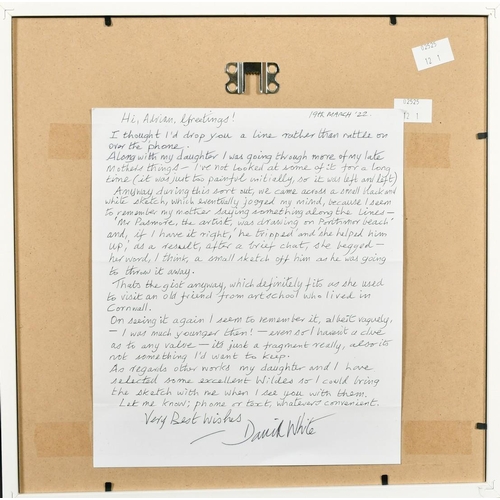 02525
12 1
02525
12 1
Hi, Adrian, Greetings!
19th MARCH '22.
I thought I'd drop you a line rather than rattle on
over the phone.
Along with my daughter I was going through more of my late
Mothers things – I've not looked at some of it for a long
time (it was just too painful initially, so it was left and left)
Anyway during this sort out, we came across a small black and
white sketch, which eventually jogged my mind, because I seem
to remember my mother saying something along the lines –
'Mr Pasmore, the artist, was drawing on Porthmeor beach'
and, if I have it right, 'he tripped and she helped him
up,' as a result, after a brief chat, she begged –
her word, I think, a small sketch off him as he was
going to throw it away.
Thats the gist anyway, which definitely fits as she used
to visit an old friend from art school who lived in
Cornwall.
On seeing it again I seem to remember it, albeit vaguely,
– I was much younger then! – even so I haven't a clue
as to any value – its just a fragment really, also its
not something I'd want to keep.
As regards other works my daughter and I have
selected some excellent Wildes so I could bring
the sketch with me when I see you with them.
Let me know; phone or text, whatevers convenient.
Very Best Wishes
– David White